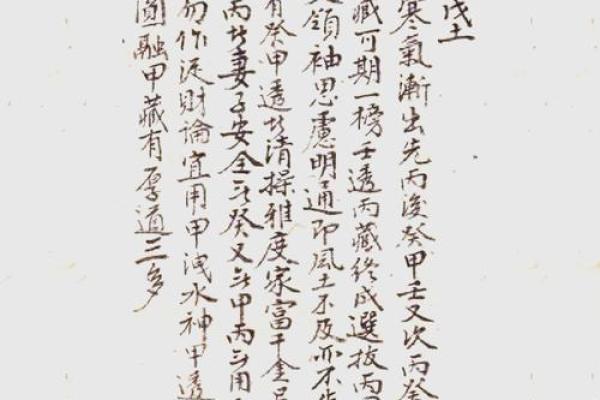 戊土
寒氣漸出先丙後癸甲壬又次丙癸
藏可期一榜壬透丙藏終成選拔丙
領袖思慮明通即風土不及亦不
有癸甲透者清操雅度家富千金
丙者妻子安全无癸又无甲丙无用
勿作從財論宜用甲洩水神甲透
圓融甲藏有厚道三多